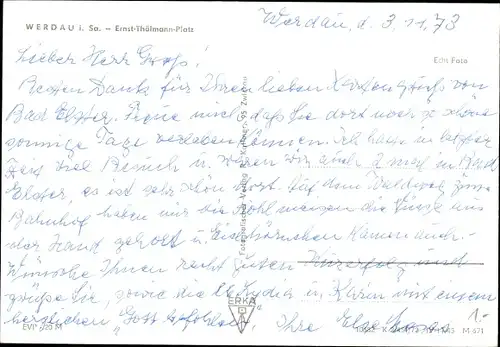 WERDAU i. Sa. – Ernst-Thälmann-Platz
Werdau, d. 3.11.73
Lieber Herr Groß!
Echt Foto
Besten Dank für Ihren lieben Kartengruß von
Bad Elster. Freue mich, daß Sie dort noch so schöne
sonnige Tage verleben können. Ich hatte in letzter
Zeit viel Besuch u. waren wir auch 2 mal in Bad
Elster, es ist sehr schön dort. Auf dem Waldweg zum
Bahnhof haben mir die Kohlmeisen die Nüsse aus
der Hand geholt u. Eichhörnchen kamen auch.
Wünsche Ihnen recht guten
grüße Sie, sowie die in mit einem
herzlichen "Gott befohlen", Ihre Else
ERKA
EVP -,20 M
M 671
1.-